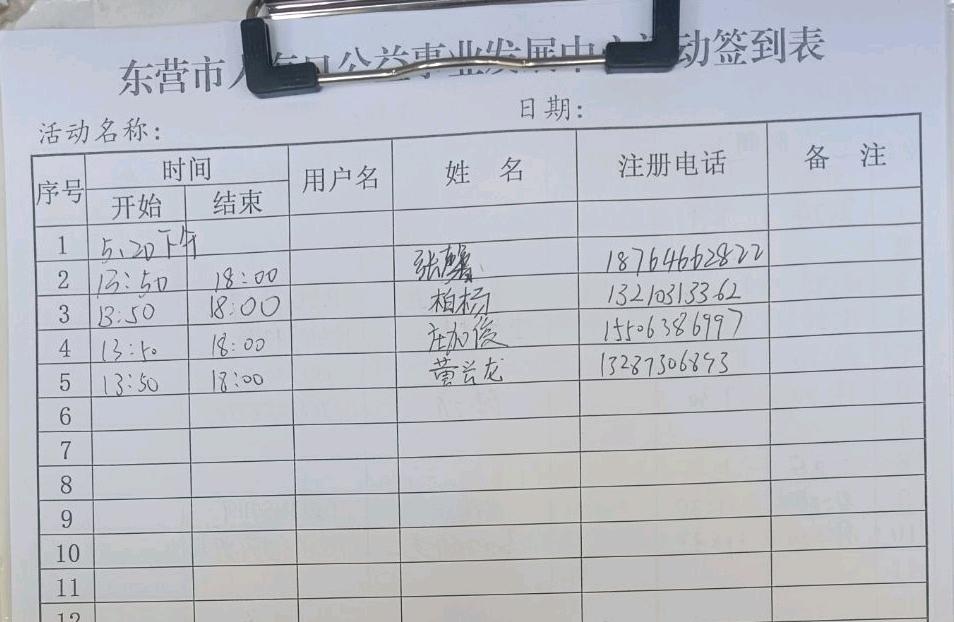 东营市人 公益事业发展中 动签到表
活动名称： 日期：
序号 时间 用户名 姓 名 注册电话 备 注
开始 结束
1 5.20下午
2 13:50 18:00 张馨 18764662822
3 13:50 18:00 柏杨 13210313362
4 13:50 18:00 庄加俊 15506386997
5 13:50 18:00 董兴龙 13287306893
6
7
8
9
10
11
12